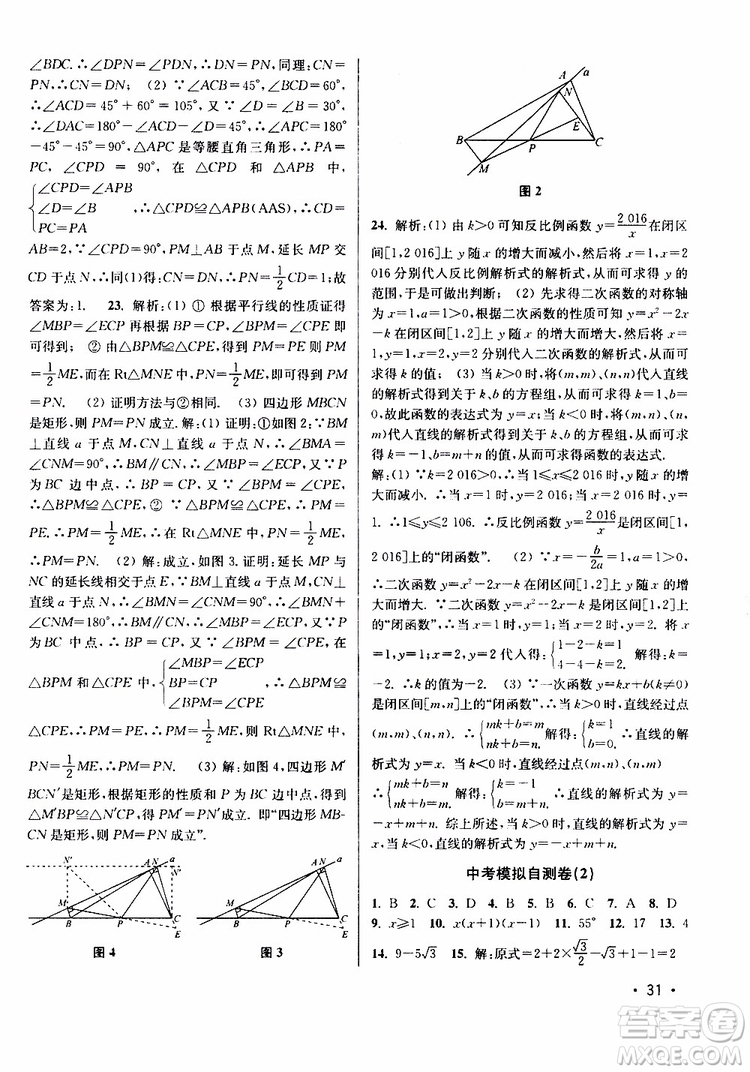 ∠BDC.∴∠DPN=∠PDN,∴DN=PN,同理:CN=
PN,∴CN=DN;(2)∵∠ACB=45°,∠BCD=60°,
∴∠ACD=45°+60°=105°,又∵∠D=∠B=30°,
∴∠DAC=180°-∠ACD-∠D=45°,∴∠APC=180°
-45°-45°=90°,△APC是等腰直角三角形,∴PA=
PC,∠CPD=90°,在△CPD和△APB中,
{∠CPD=∠APB
∠D=∠B ∴△CPD≌△APB(AAS),∴CD=
PC=PA
AB=2,∵∠CPD=90°,PM⊥AB于点M,延长MP交
CD于点N,∴CN=DN=PN=1/2CD=1;故
答案为:1. 23. 解析:(1)①根据平行线的性质证得
∠MBP=∠ECP再根据BP=CP,∠BPM=∠CPE即
可得到;②由△MBP≌△ECP,得到PM=PE则PM
=1/2ME,而在Rt△MNE中,PN=1/2ME,即可得到PM
=PN. (2)证明方法与②相同. (3)四边形MBCN
是矩形,则PM=PN成立.解:(1)①如图2:∵BM
⊥直线a于点M,CN⊥直线a于点N,∴∠BMA=
∠CNM=90°,∴BM∥CN,∴∠MBP=∠ECP,又∵P
为BC边中点,∴BP=CP,又∵∠BPM=∠CPE,
∴△BPM≌△CPE,②∵△BPM≌△CPE,∴PM=
PE∴PM=1/2ME,∴在Rt△MNE中,PN=1/2ME,
∴PM=PN. (2)解:成立,如图3.证明:延长MP与
NC的延长线相交于点E,∵BM⊥直线a于点M,CN
⊥直线a于点N,∴∠BMN=∠CNM=90°∴∠BMN+
∠CNM=180°,∴BM∥CN∴∠MBP=∠ECP,又∵P为
BC中点,∴BP=CP,又∵∠BPM=∠CPE,在
△BPM和△CPE中,{∠MBP=∠ECP
BP=CP ∴△BPM≌
∠BPM=∠CPE
△CPE,∴PM=PE,∴PM=1/2ME,则Rt△MNE中,
PN=1/2ME,∴PM=PN. (3)解:如图4,四边形M′
BCN′是矩形,根据矩形的性质和P为BC边中点,得到
△M′BP≌△N′CP,得PM′=PN′成立.即“四边形MB-
CN是矩形,则PM=PN成立”.
N′ A N a N′
M B P C E
图4
A N a M B P C E
图3
A a N B P E C M
图2
24. 解析:(1)由k>0可知反比例函数y=2 016/x在闭区
间[1,2 016]上y随x的增大而减小,然后将x=1,x=2
016分别代人反比例解析式的解析式,从而可求得y的
范围,于是可做出判断;(2)先求得二次函数的对称轴
为x=1,a=1>0,根据二次函数的性质可知y=x²-2x
-k在闭区间[1,2]上y随x的增大而增大,然后将x=
1,y=1,x=2,y=2分别代人二次函数的解析式,从而可求
得k的值;(3)当k>0时,将(m,m)、(n,n)代人直线
的解析式得到关于k、b的方程组,从而可求得k=1,b=
0,故此函数的表达式为y=x;当k<0时,将(m,n)、(n,
m)代人直线的解析式得到关于k、b的方程组,从而可求
得k=-1,b=m+n的值,从而可求得函数的表达式.
解:(1)∵k=2 016,∴当1≤x≤2 016时,y随x
的增大而减小.∴当x=1时,y=2 016,x=2 016时,y=
1.∴1≤y≤2 106.∴反比例函数y=2 016/x是闭区间[1,
2 016]上的“闭函数”. (2)∵x=-b/2a=1,a=1>0,
∴二次函数y=x²-2x-k在闭区间[1,2]上y随x的
增大而增大.∵二次函数y=x²-2x-k是闭区间[1,2]
上的“闭函数”,∴当x=1时,y=1,当x=2时,y=2.将x
=1,y=1,x=2,y=2代人得:{1-2-k=1
4-4-k=2 解得:k=
-2.∴k的值为-2. (3)∵一次函数y=kx+b(k≠0)
是闭区间[m,n]上的“闭函数”,∴当k>0时,直线经过点
(m,m)、(n,n).∴{mk+b=m
nk+b=n 解得:{k=1
b=0.∴直线的解
析式为y=x.当k<0时,直线经过点(m,n)、(n,m)
∴{mk+b=n
nk+b=m 解得:{k=-1
b=m+n.∴直线的解析式为
y=-x+m+n. 综上所述,当k>0时,直线的解析式为
y=x,当k<0时,直线的解析式为y=-x+m+n.
中考模拟自测卷(2)
1. B 2. C 3. D 4. D 5. B 6. C 7. A 8. D
9. x≥1 10. x(x+1)(x-1) 11. 55° 12. 17 13. 4
14. 9-5√3 15. 解:原式=2+2×√3/2-√3+1-1=2
· 31 ·
答案圈
MXQE.COM